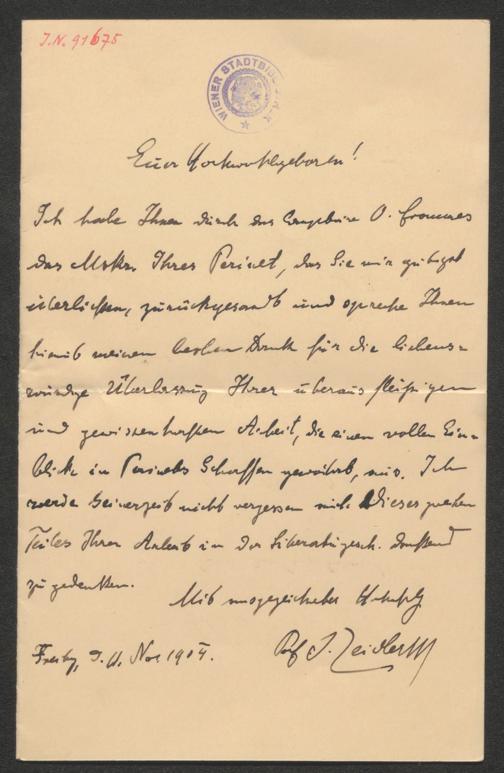 J.N. 91675
WIENER STADTBIBLIOTHEK
Euer Hochwohlgeboren!
Ich habe Ihnen durch das O. Frommes
das Mskr. Ihres Perinet, das Sie mir gütigst
überließen, zurückgesandt und spreche Ihnen
hiemit meinen besten Dank für die liebens=
würdige Überlassung Ihrer überaus fleißigen
und gewissenhaften Arbeit, die einen vollen Ein=
blick in Perinets Schaffen gewährt, aus. Ich
werde seinerzeit nicht vergessen dieses
Teiles Ihrer Arbeit in der Literaturgesch. dankend
zu gedenken.
Mit ausgezeichneter Hochachtg
Freitag, d. 11. Nov 1904. Prof J. Zeidler